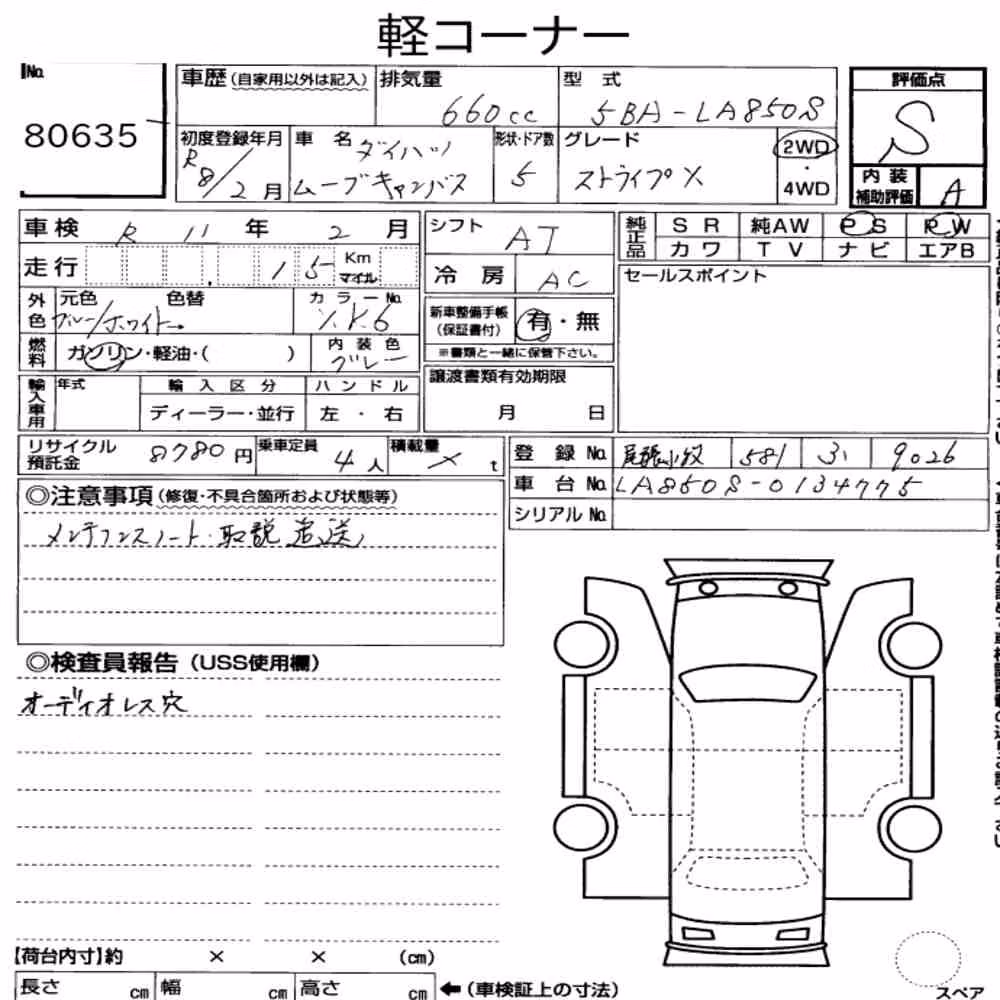 軽コーナー
No. 80635
車歴 (自家用以外は記入) 排気量 660cc 型 式 5BA-LA850S
初度登録年月 R8/2月 車 名 ダイハツ ムーブキャンバス 形状・ドア数 5 グレード ストライプX 2WD・4WD
評価点 S
内装補助評価 A
車検 R 11 年 2 月
シフト AT
純正品 SR 純AW PS PW
カワ TV ナビ エアB
走行 15 Km マイル
冷房 AC
セールスポイント
外色 元色 ブルー/ホワイト 色替 → カラーNo.
新車整備手帳 (保証書付) 有・無
※書類と一緒に保管下さい。
燃料 ガソリン・軽油・( ) 内装色 グレー
輸入車用 年式 輸入区分 ハンドル
ディーラー・並行 左・右
譲渡書類有効期限
月 日
リサイクル預託金 8780円 乗車定員 4人 積載量 × t
登録No. 尾張小牧 581 9026
車台No. LA850S-0134775
シリアルNo.
◎注意事項 (修復・不具合箇所および状態等)
メンテナンスノート・取説 追送
◎検査員報告 (USS使用欄)
オーディオレス穴
【荷台内寸】約 × × (cm)
長さ cm 幅 cm 高さ cm ←(車検証上の寸法)
スペア